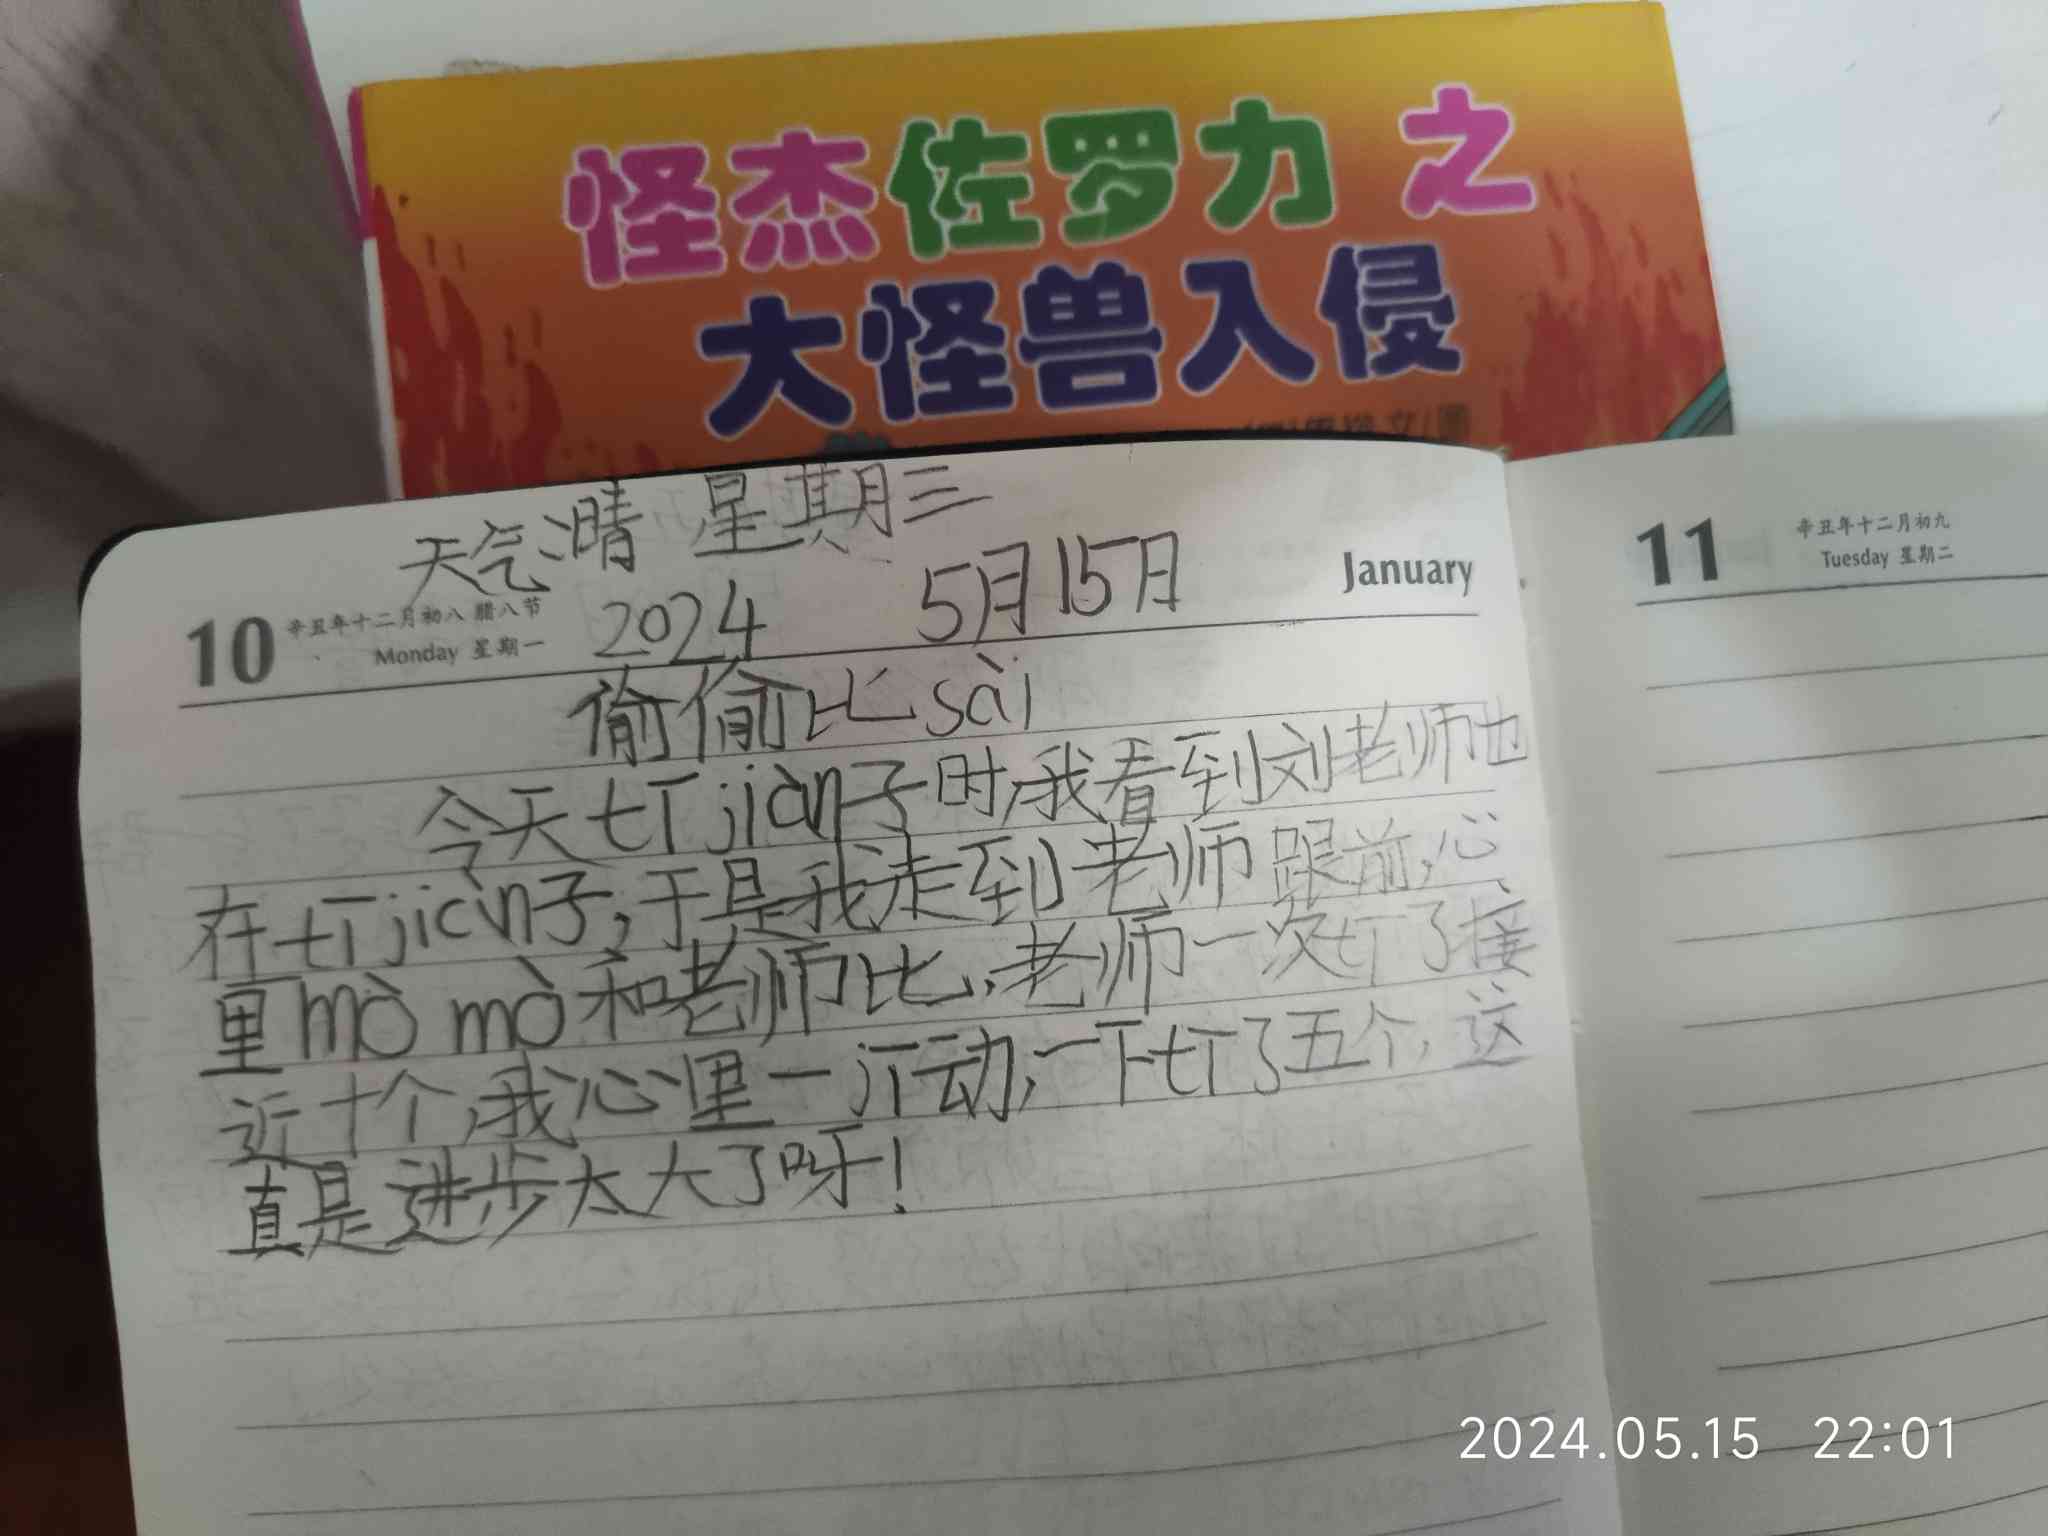 怪杰佐罗力 之
大怪兽入侵
天气:晴 星期三
10 辛丑年十二月初八 腊八节
Monday 星期一
2024 5月15日
January
偷偷比sài
今天tī jiàn子时,我看到刘老师也
在tī jiàn子,于是我走到老师跟前,心
里mò mò和老师比,老师一次tī了接
近十个,我心里一激动,一下tī了五个,这
真是进步太大了呀!
11 辛丑年十二月初九
Tuesday 星期二
2024.05.15 22:01